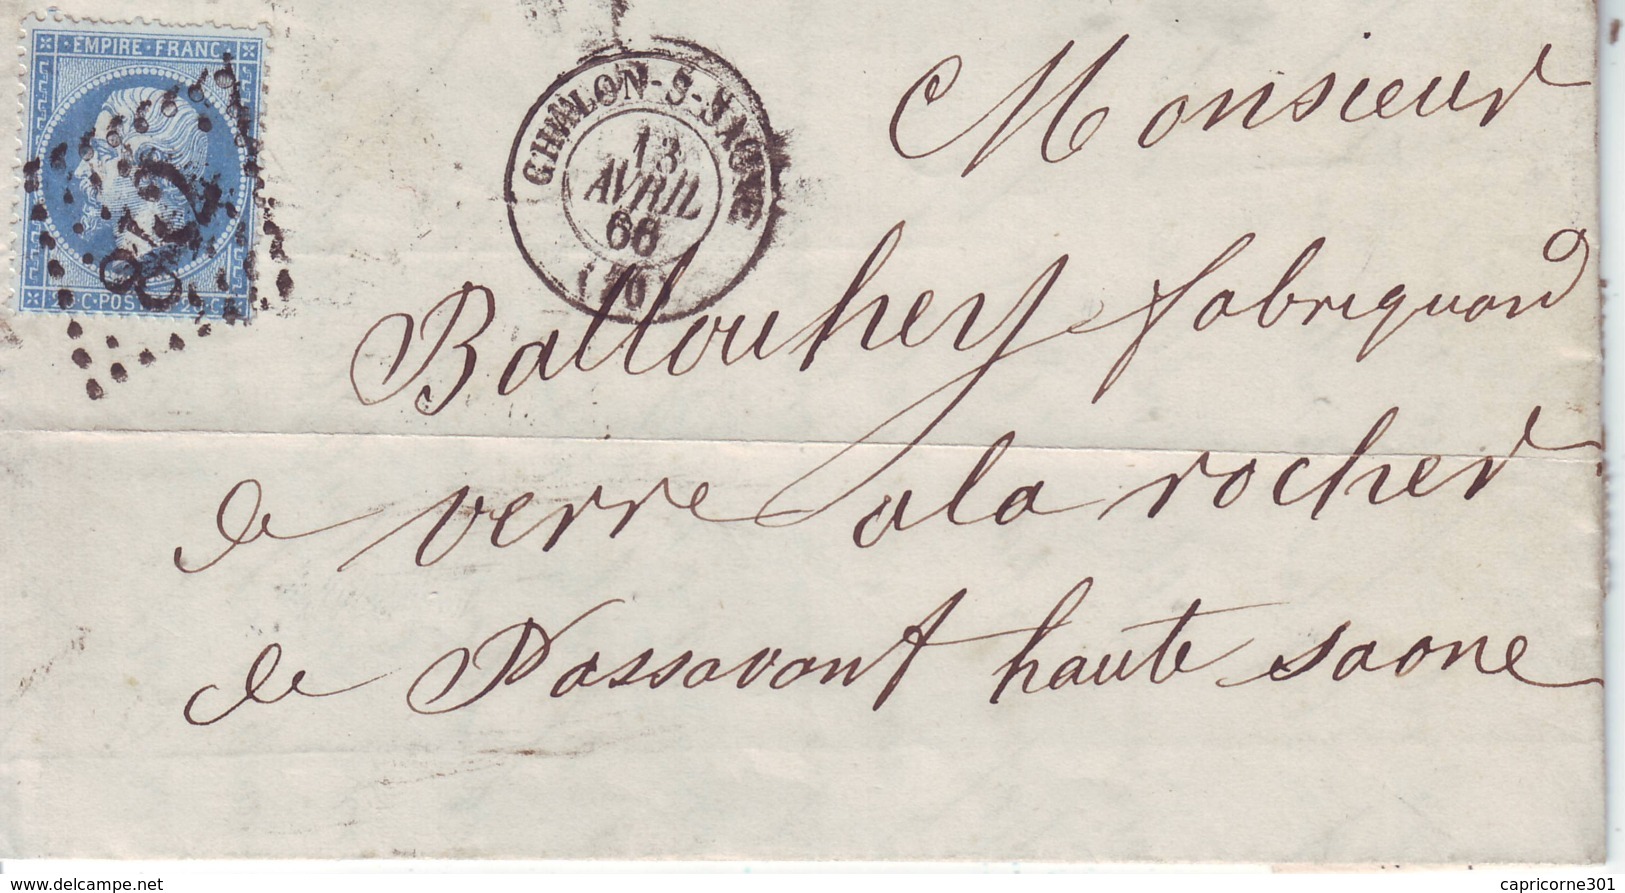 EMPIRE FRANC
20 C POSTES 20 C
862
CHALON-S-SAONE
13
AVRIL
66
(70)
Monsieur
Ballouhey fabriquand
de verre ala rocher
de Passavant haute saone
www.delcampe.net
capricorne301